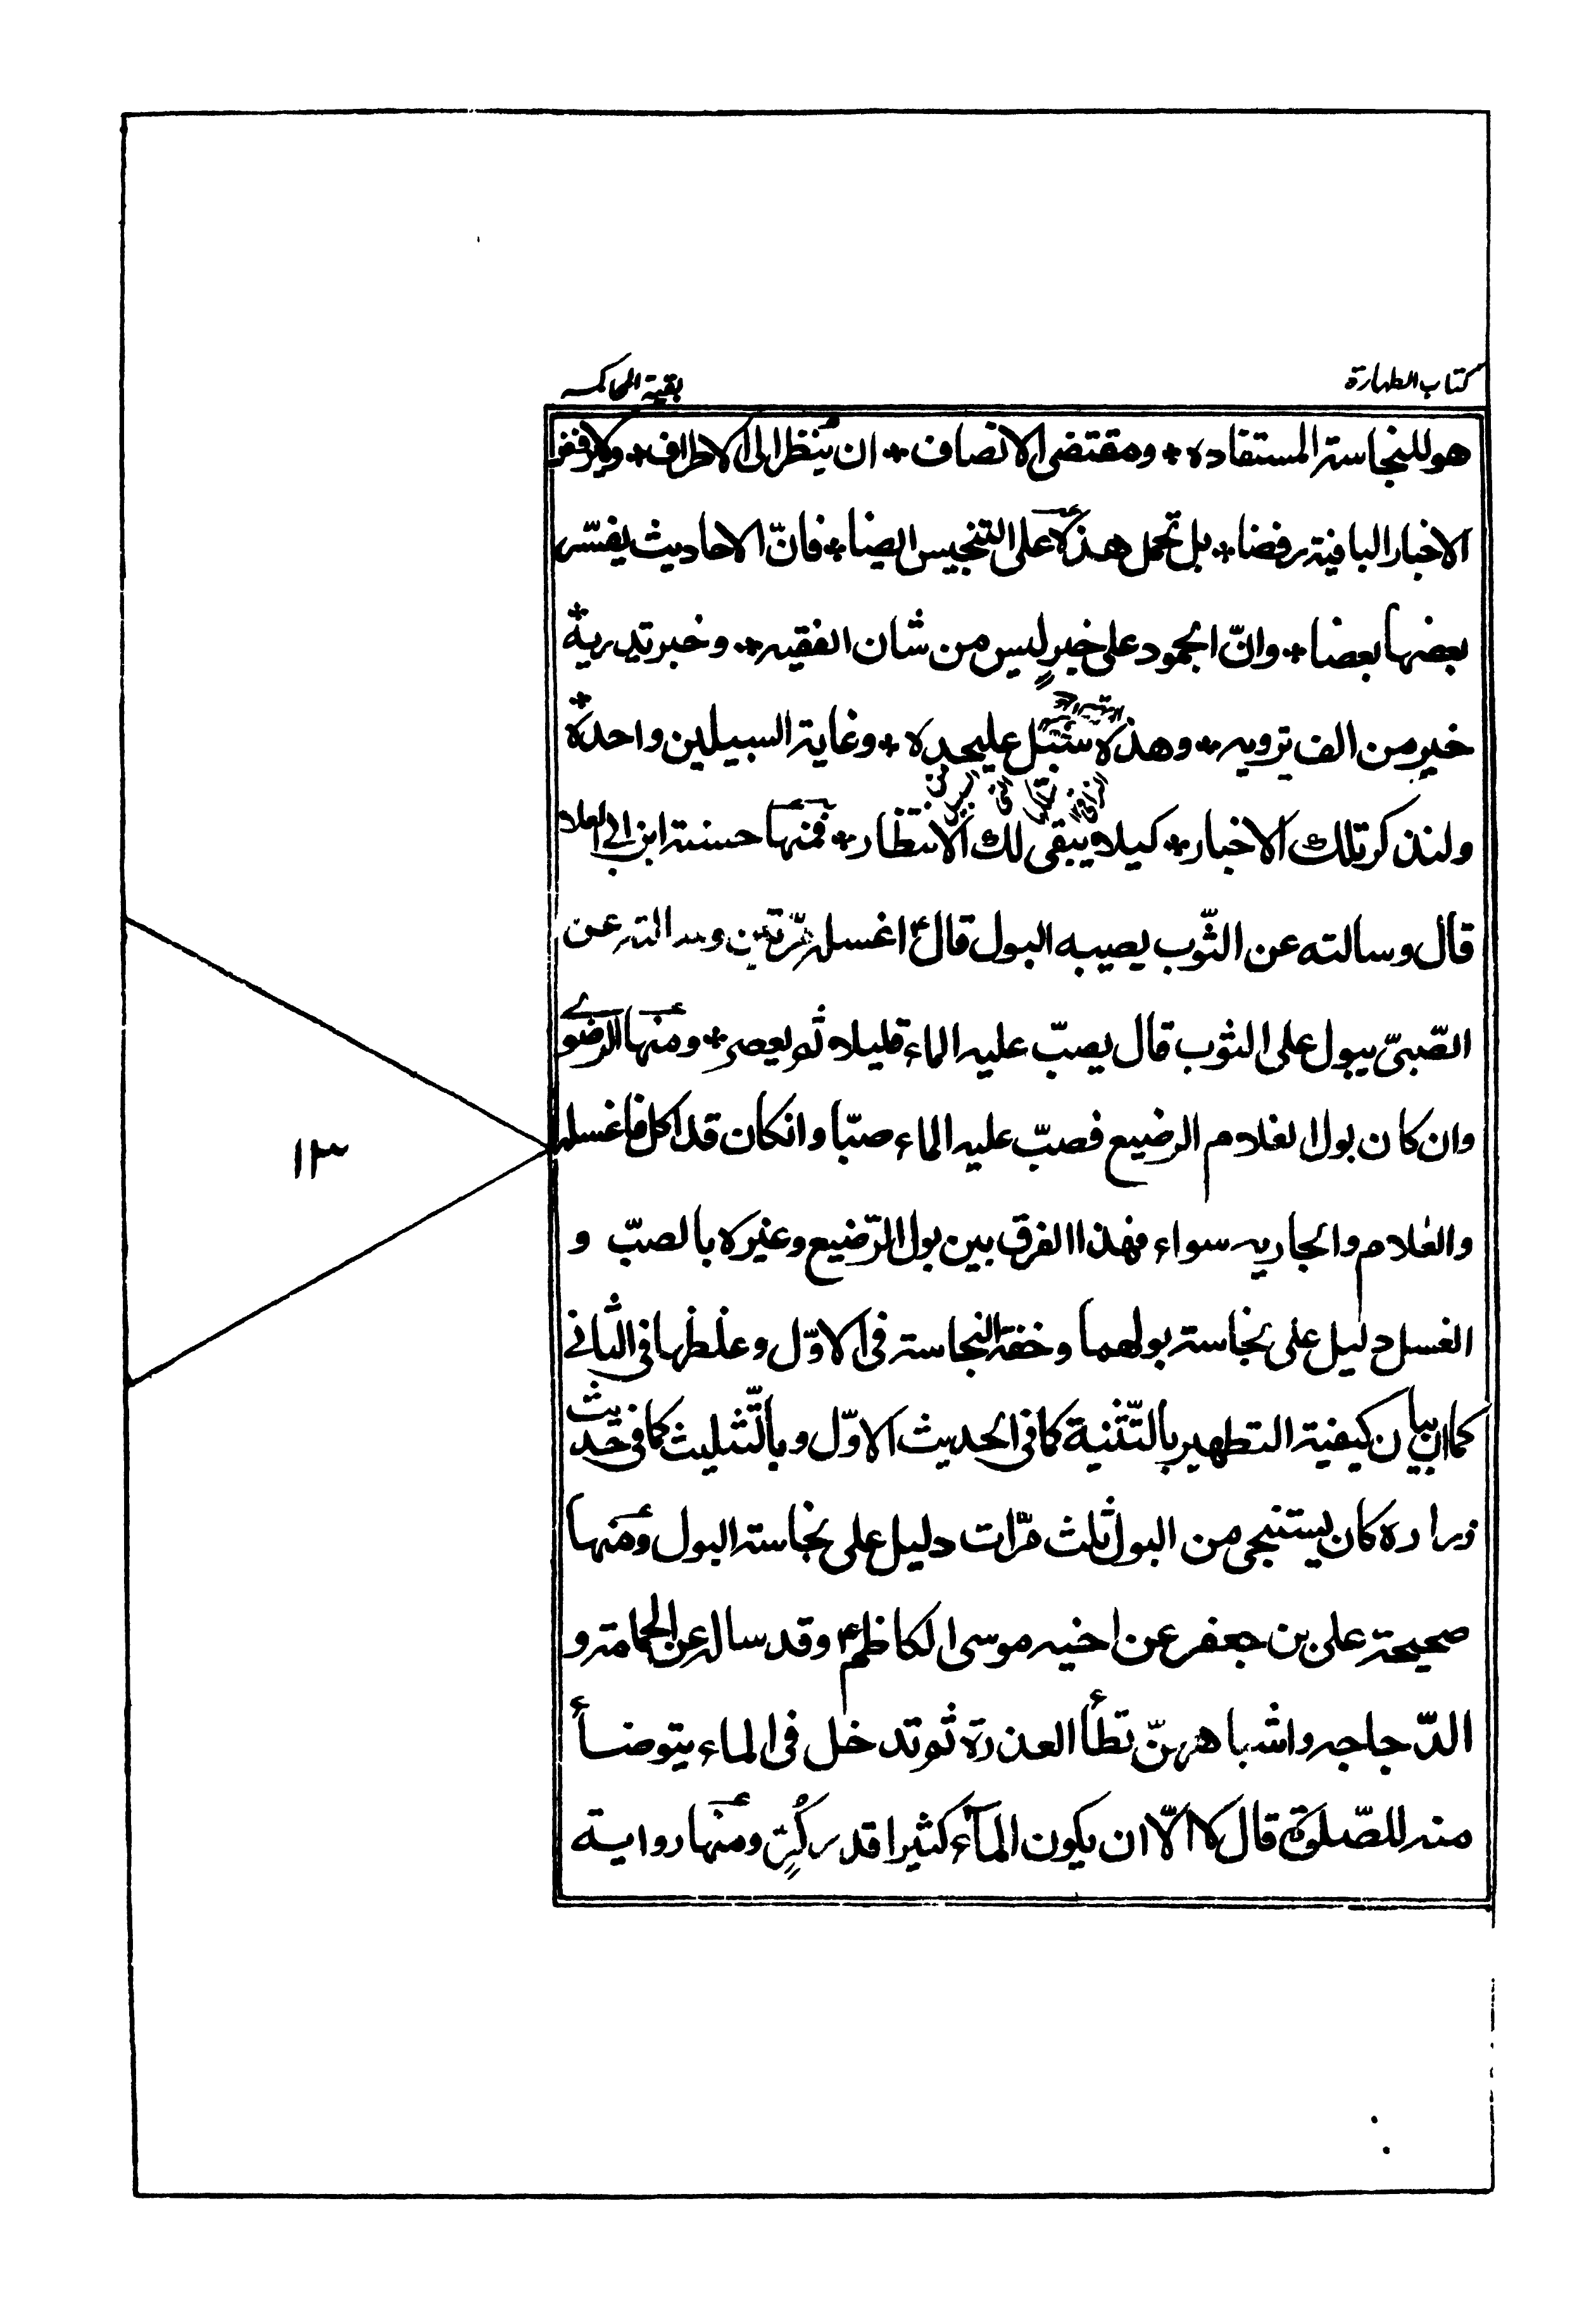 كتاب الطهارة
بقية المحاكمه
هو للنجاسة المستفاده * ومقتضى الانصاف * ان يُنظر الى الاطراف * ولا يرفض
الاخبار الباقية رفضا * بل تحمل هذه على التنجيس ايضا * فانّ الاحاديث يفسّر
بعضها بعضا * وانّ الجمود على خبرٍ ليس من شان الفقيه * وخبر تدريه *
خير من الف ترويه * وهذه سُبُل عليحده * وغاية السبيلين واحدة *
ولنذكر تلك الاخبار * كيلا يبقى لك الانتظار * فمنها حسنة ابن ابي العلا
قال وسالته عن الثّوب يصيبه البول قال ع اغسله مرّتين وسالته عن
الصّبيّ يبول على الثوب قال يصبّ عليه الماء قليلا ثم يعصر * ومنها الرضوي
وان كان بول الغلام الرضيع فصبّ عليه الماء صبّا وانكان قد اكل فاغسله
والغلام والجاريه سواء فهذا الفرق بين بول الرّضيع وغيره بالصبّ و
الغسل دليل على نجاسة بولهما وخفة النجاسة في الاوّل وغلظها في الثاني
كما ان بيان كيفية التطهير بالتّثنية كما في الحديث الاوّل وبالتّثليث كما في حديث
زراره كان يستنجي من البول ثلث مرّات دليل على نجاسة البول ومنها
صحيحة علي بن جعفر عن اخيه موسى الكاظم ع وقد ساله عن الحمامة و
الدّجاجه واشباههنّ تطأ العذرة ثم تدخل في الماء يتوضأ
منه للصّلوة قال لا الّا ان يكون المآء كثيرا قدر كُرٍّ ومنها رواية
١٣